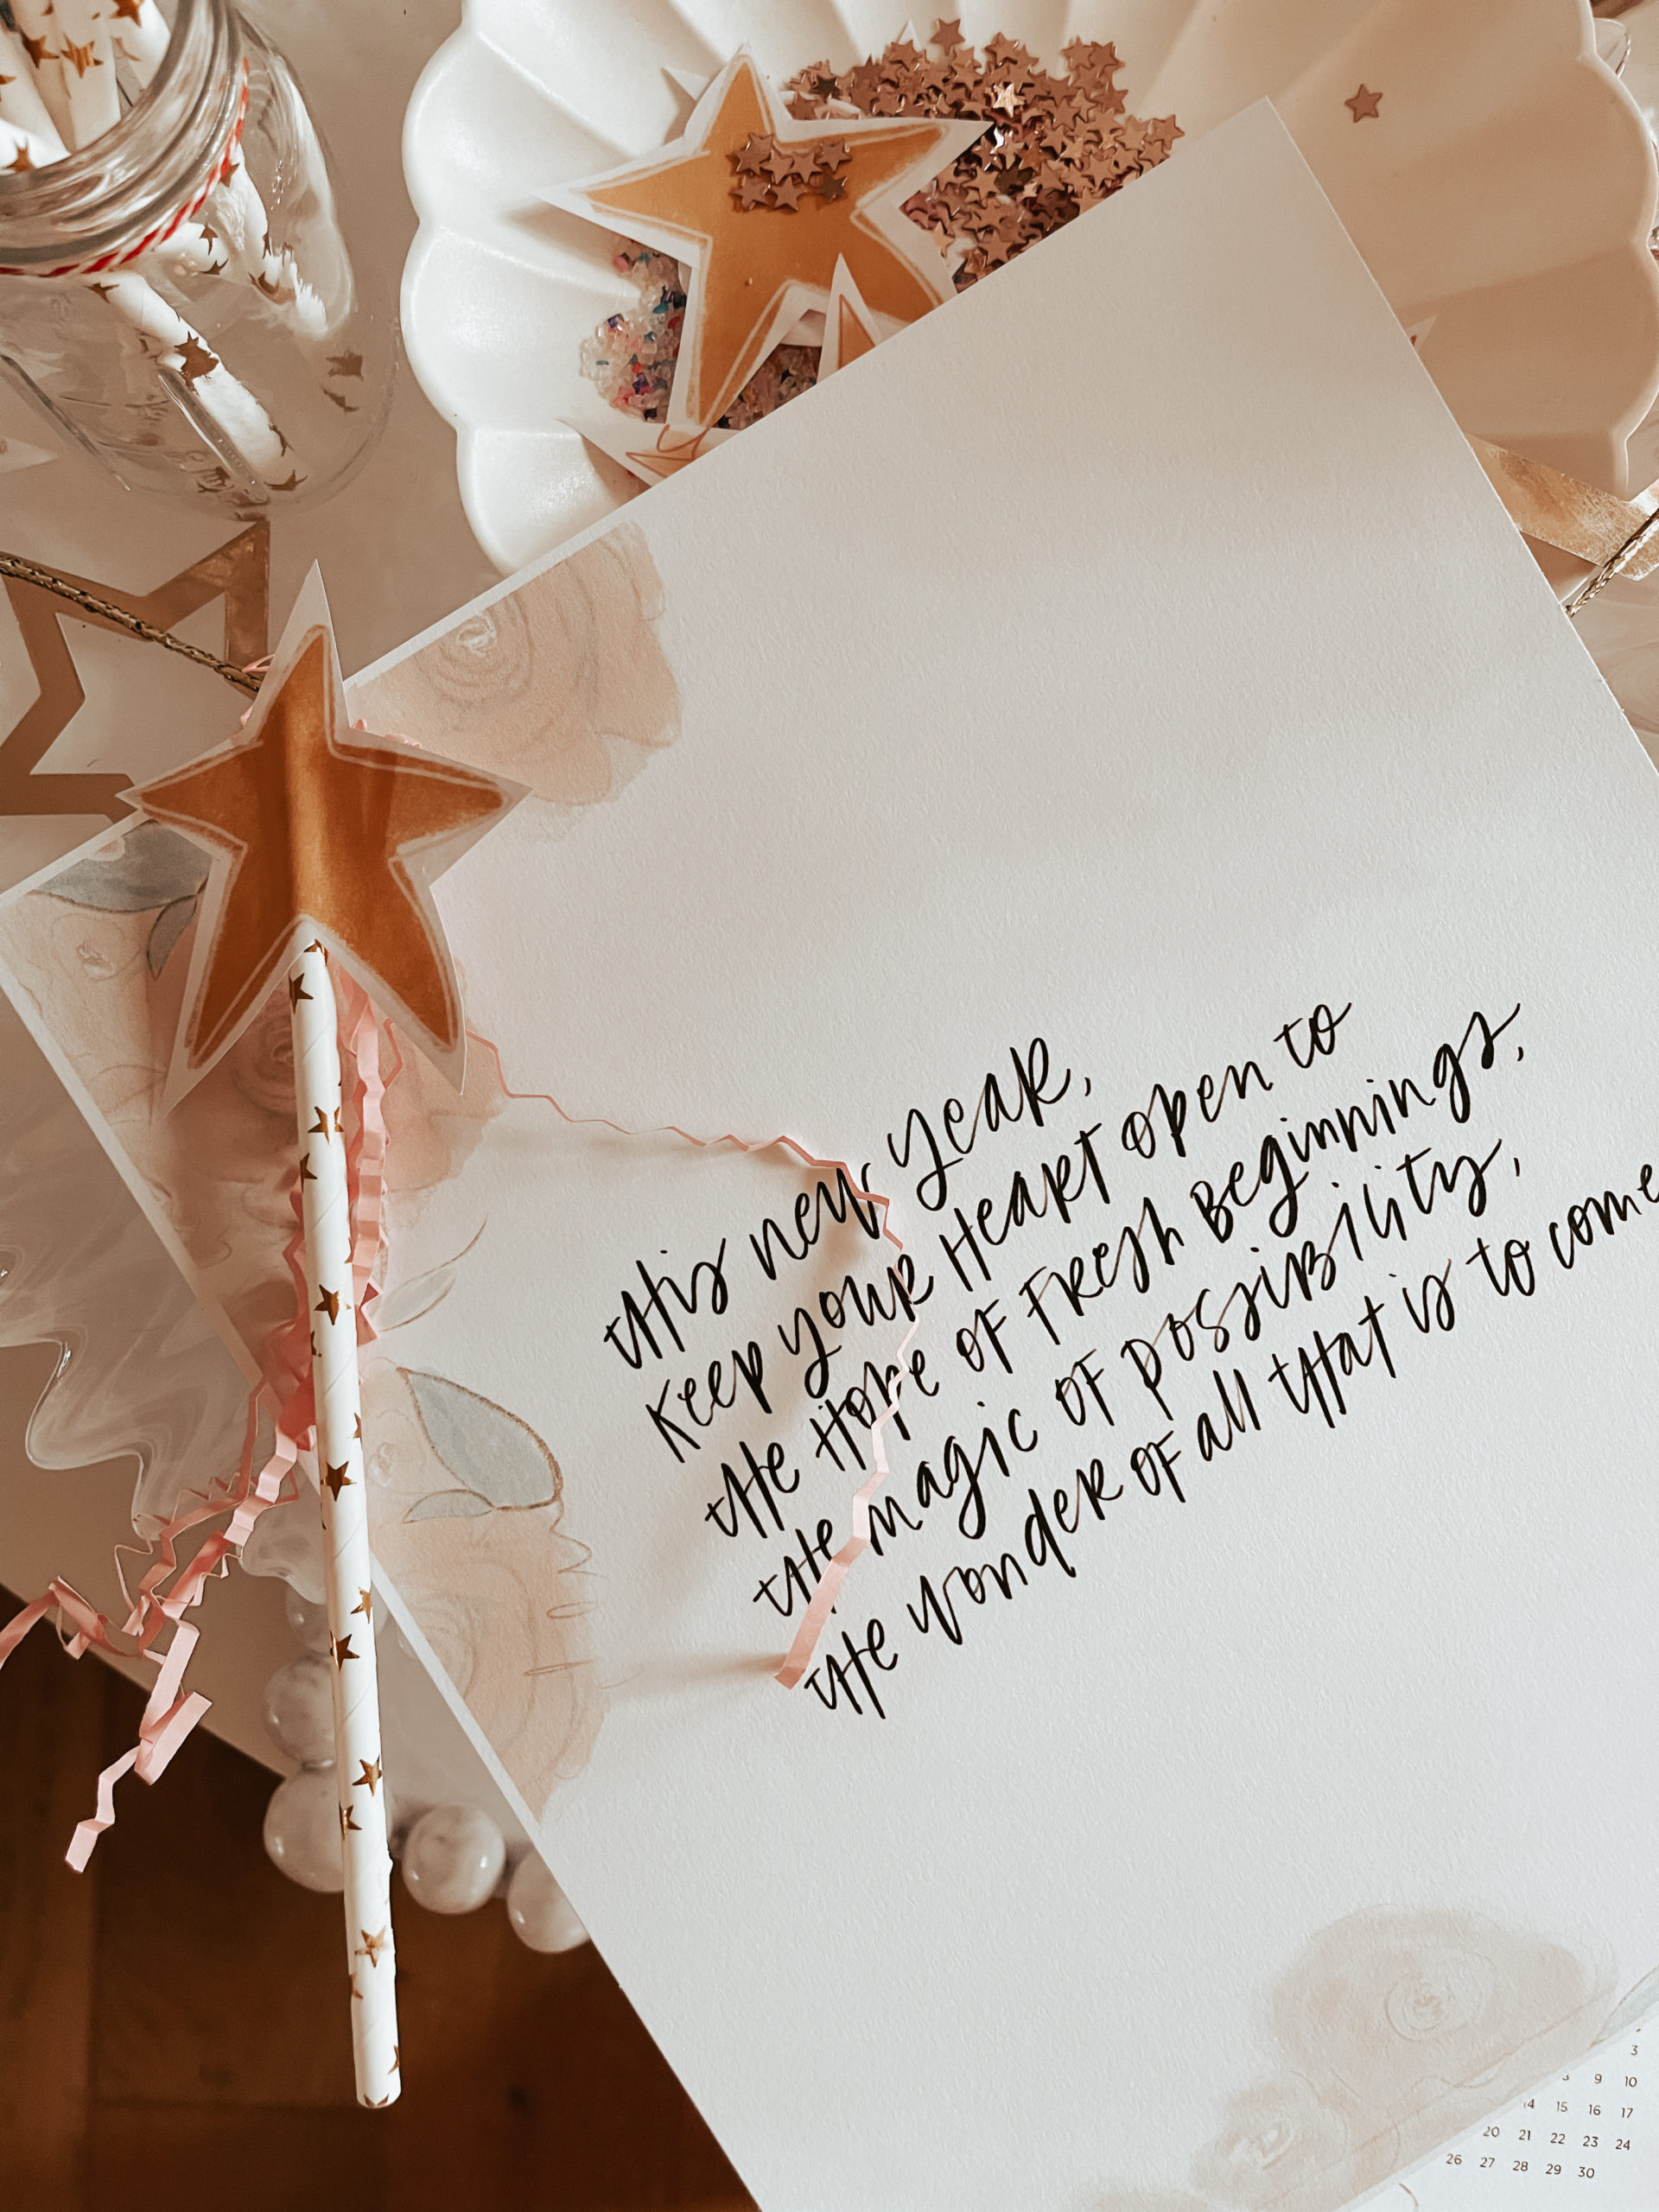 this new year,
keep your heart open to
the hope of fresh beginnings,
the magic of possibility,
the wonder of all that is to come
3
9 10
14 15 16 17
20 21 22 23 24
26 27 28 29 30